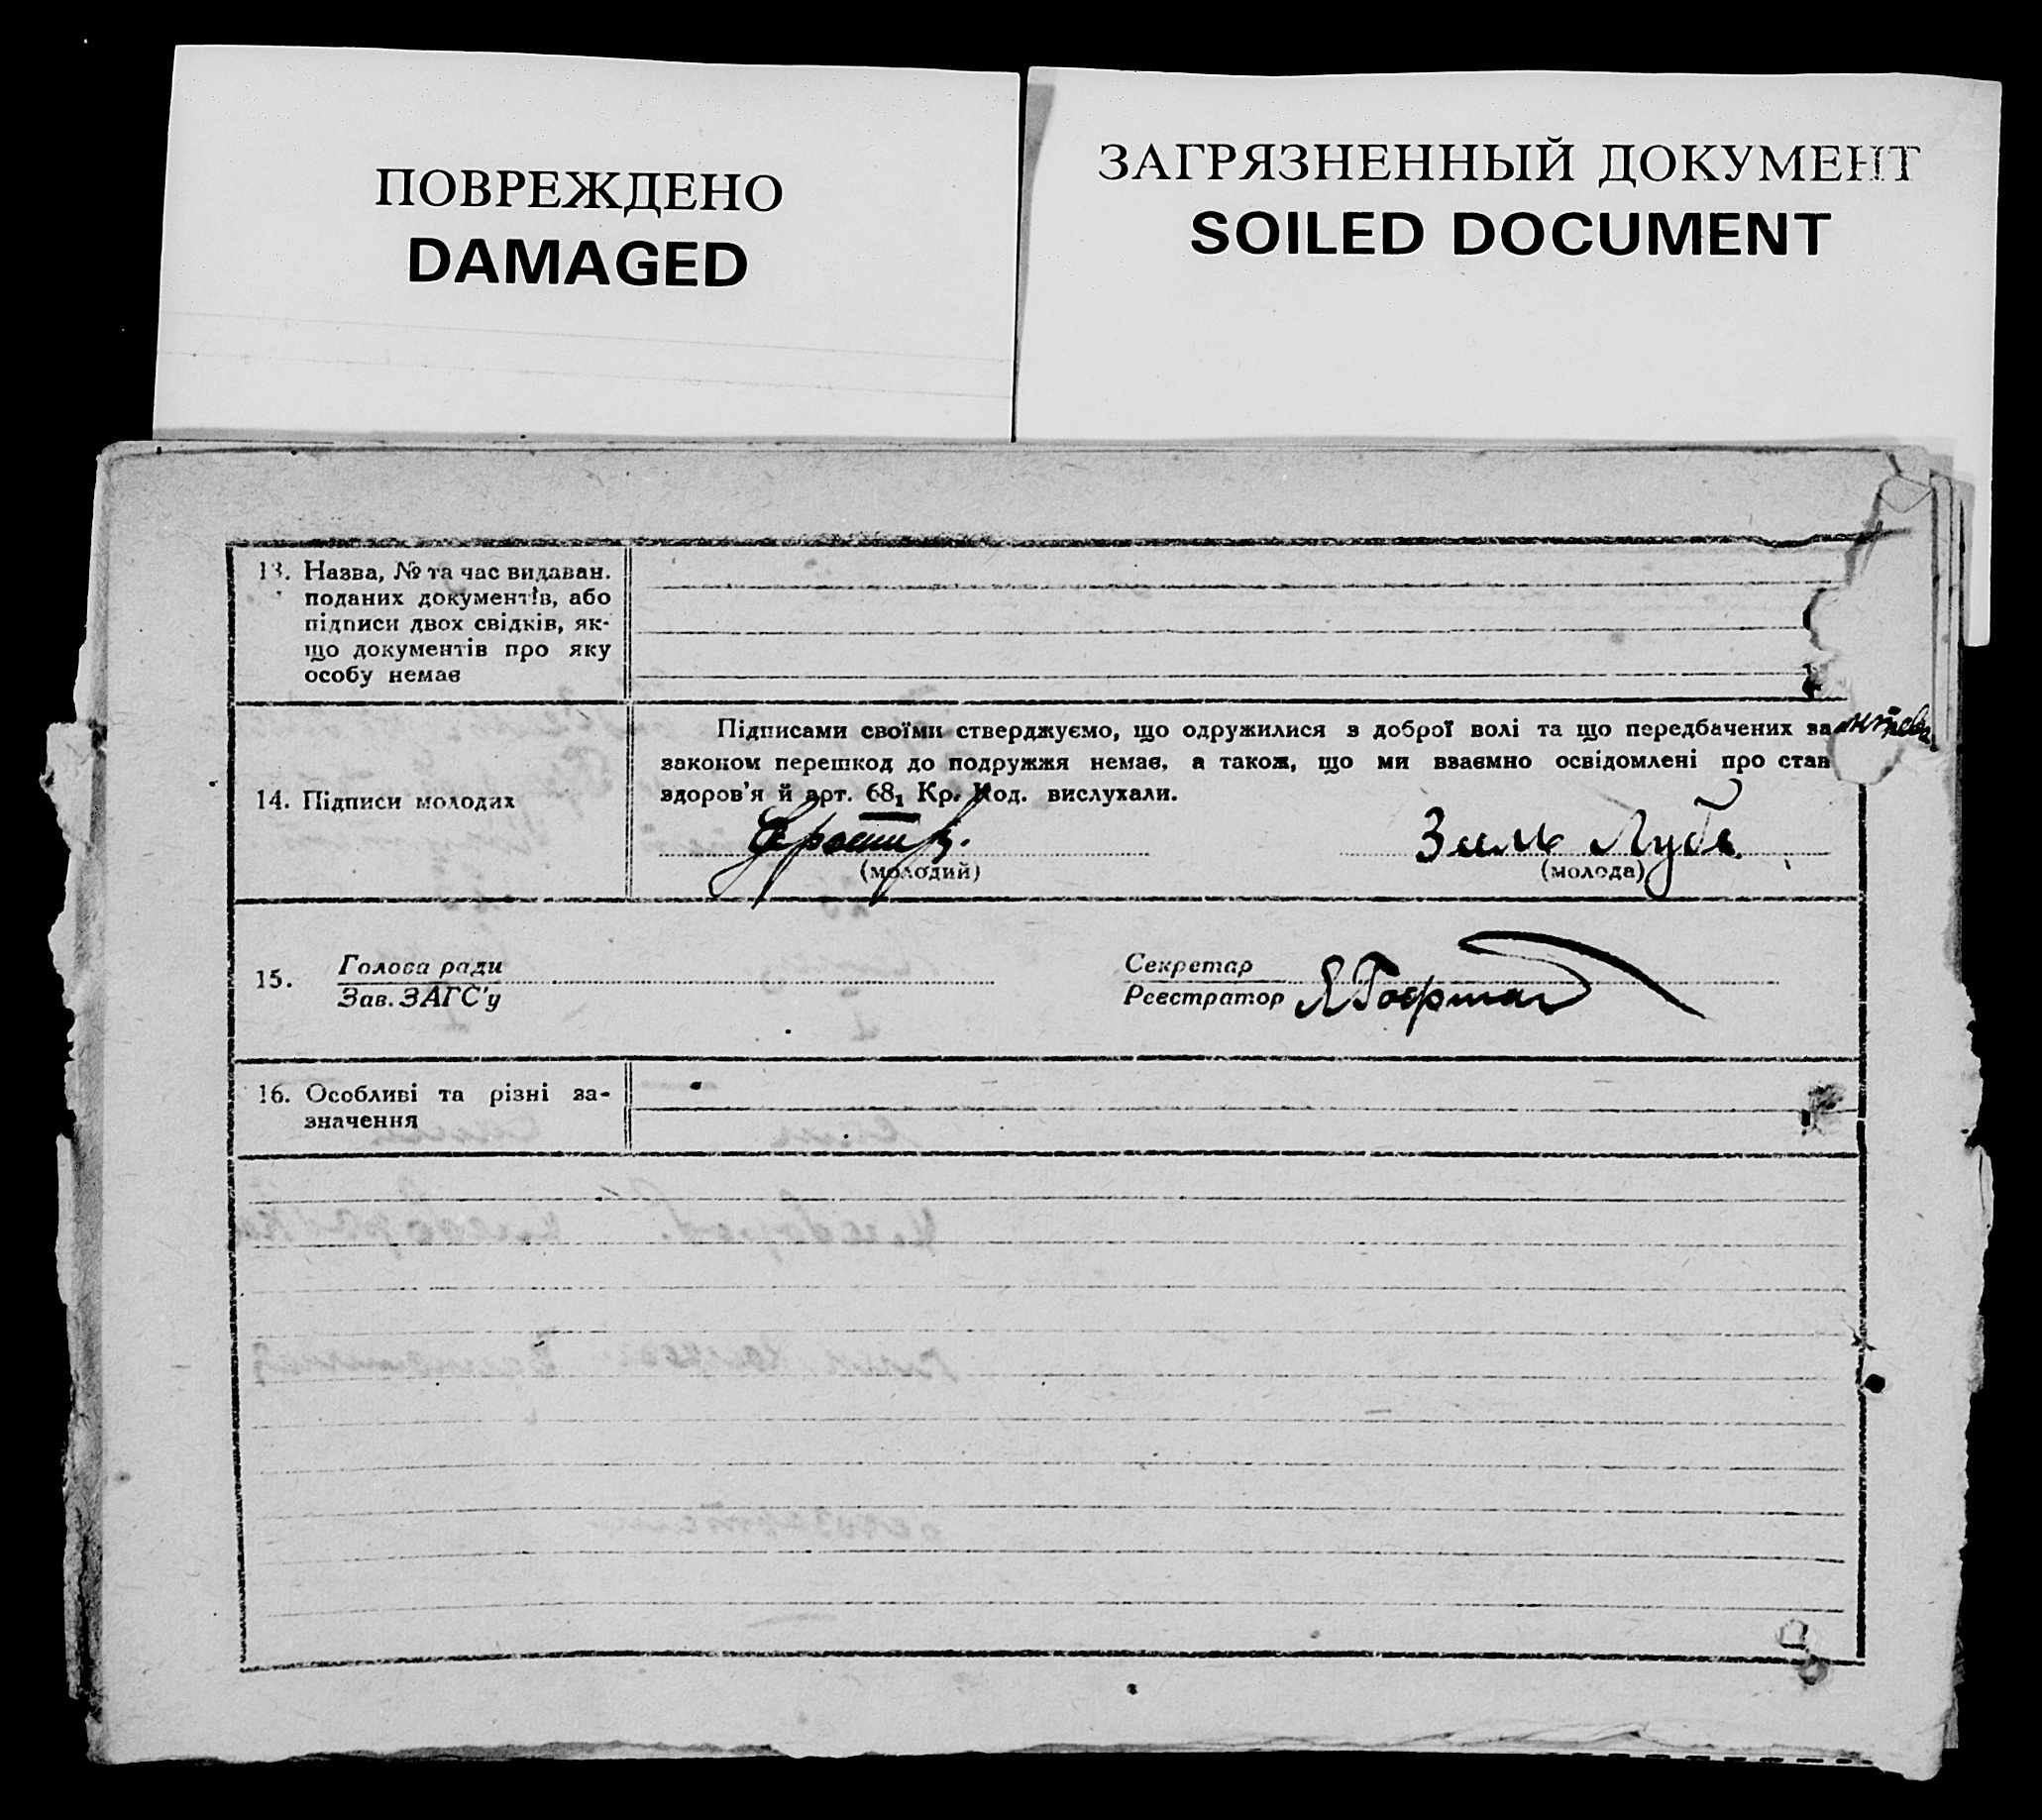 ПОВРЕЖДЕНО
DAMAGED
ЗАГРЯЗНЕННЫЙ ДОКУМЕНТ
SOILED DOCUMENT
13. Назва, № та час видаван.
поданих документів, або
підписи двох свідків, як-
що документів про яку
особу немає
14. Підписи молодих
Підписами своїми стверджуємо, що одружилися з доброї волі та що передбачених за
законом перешкод до подружжя немає, а також, що ми взаємно освідомлені про стан
здоров'я й арт. 68₁ Кр. Код. вислухали.
Зиль Луба
(молодий)
(молода)
15.
Голова ради
Зав. ЗАГС'у
Секретар
Реєстратор
16. Особливі та різні за-
значення